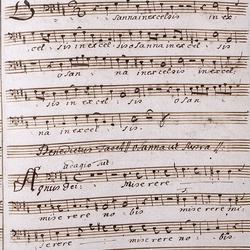 O sanna in excelsis in ex
cel sis in excel sis osanna in excel
sis O san na in excelsis in excel
sis in excel sis O san
na in excel sis.
Benedictus Tacet // Osanna ut supra //
adagio tut:
Agnus dei: Mise rere
mise rere no bis mise re
serere no bis